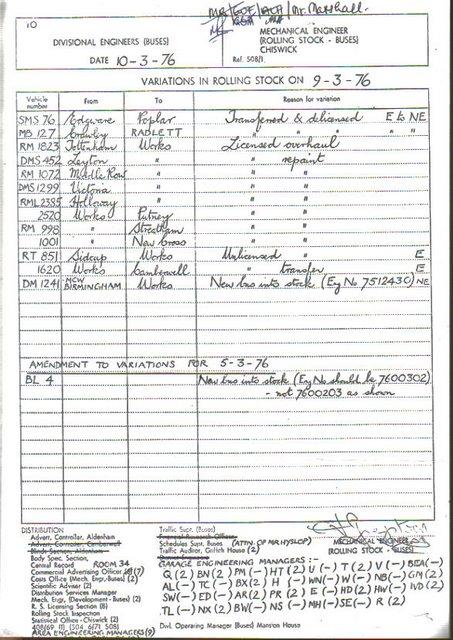 10
MR/COE/ACA/Mr. Marshall.
DIVISIONAL ENGINEERS (BUSES)
DATE 10-3-76
MECHANICAL ENGINEER
(ROLLING STOCK - BUSES)
CHISWICK
Ref. 508/1.
VARIATIONS IN ROLLING STOCK ON 9-3-76
Vehicle number From To Reason for variation
SMS 76 Edgware Poplar Transferred & delicensed E to NE
MB 127 Crawley RADLETT " " " " "
RM 1823 Tottenham Works Licensed overhaul
DMS 452 Leyton " " repaint
RM 1072 Middle Row " " "
DMS1299 Victoria " " "
RML 2385 Holloway " " "
2520 Works Putney "
RM 998 " Streatham "
1001 " New Cross "
RT 851 Sidcup Works Unlicensed " E
1620 Works Camberwell " transfer E
DM 1241 MCW BIRMINGHAM Works New bus into stock (Eng No 7512430) NE
AMENDMENT TO VARIATIONS FOR 5-3-76
BL 4 New bus into stock (Eng No should be 7600302)
- not 7600203 as shown
MECHANICAL ENGINEER
(ROLLING STOCK - BUSES)
DISTRIBUTION
Advert. Controller, Aldenham
Advert. Controller, Camberwell
Blinds Section, Aldenham
Body Spec. Section,
Central Record ROOM 34
Commercial Advertising Officer (7)
Costs Office (Mech. Engr. Buses) (2)
Scientific Adviser (2)
Distribution Services Manager
Mech. Engr. (Development - Buses) (2)
R. S. Licensing Section (8)
Rolling Stock Inspection
Statistical Office - Chiswick (2)
AREA ENGINEERING MANAGERS (9)
Traffic Supt. (Buses)
Financial Research Officer
Schedules Supt. Buses (ATTN. OF MR HYSLOP)
Traffic Auditor, Griffith House (2)
District Engineers
GARAGE ENGINEERING MANAGERS :-
Q (2) BN (2) PM (-) HT (2) U (-) T (2) V (-) BEA (-)
AL (-) TC (-) BX (2) H (-) WN (-) W (-) NB (-) GM (2)
SW (-) ED (-) AR (2) PR (2) E (-) HD (2) HW (-) WD (2)
TL (-) NX (2) BW (-) NS (-) MH (-) SE (-) R (2)
Divl. Operating Manager (Buses) Mansion House